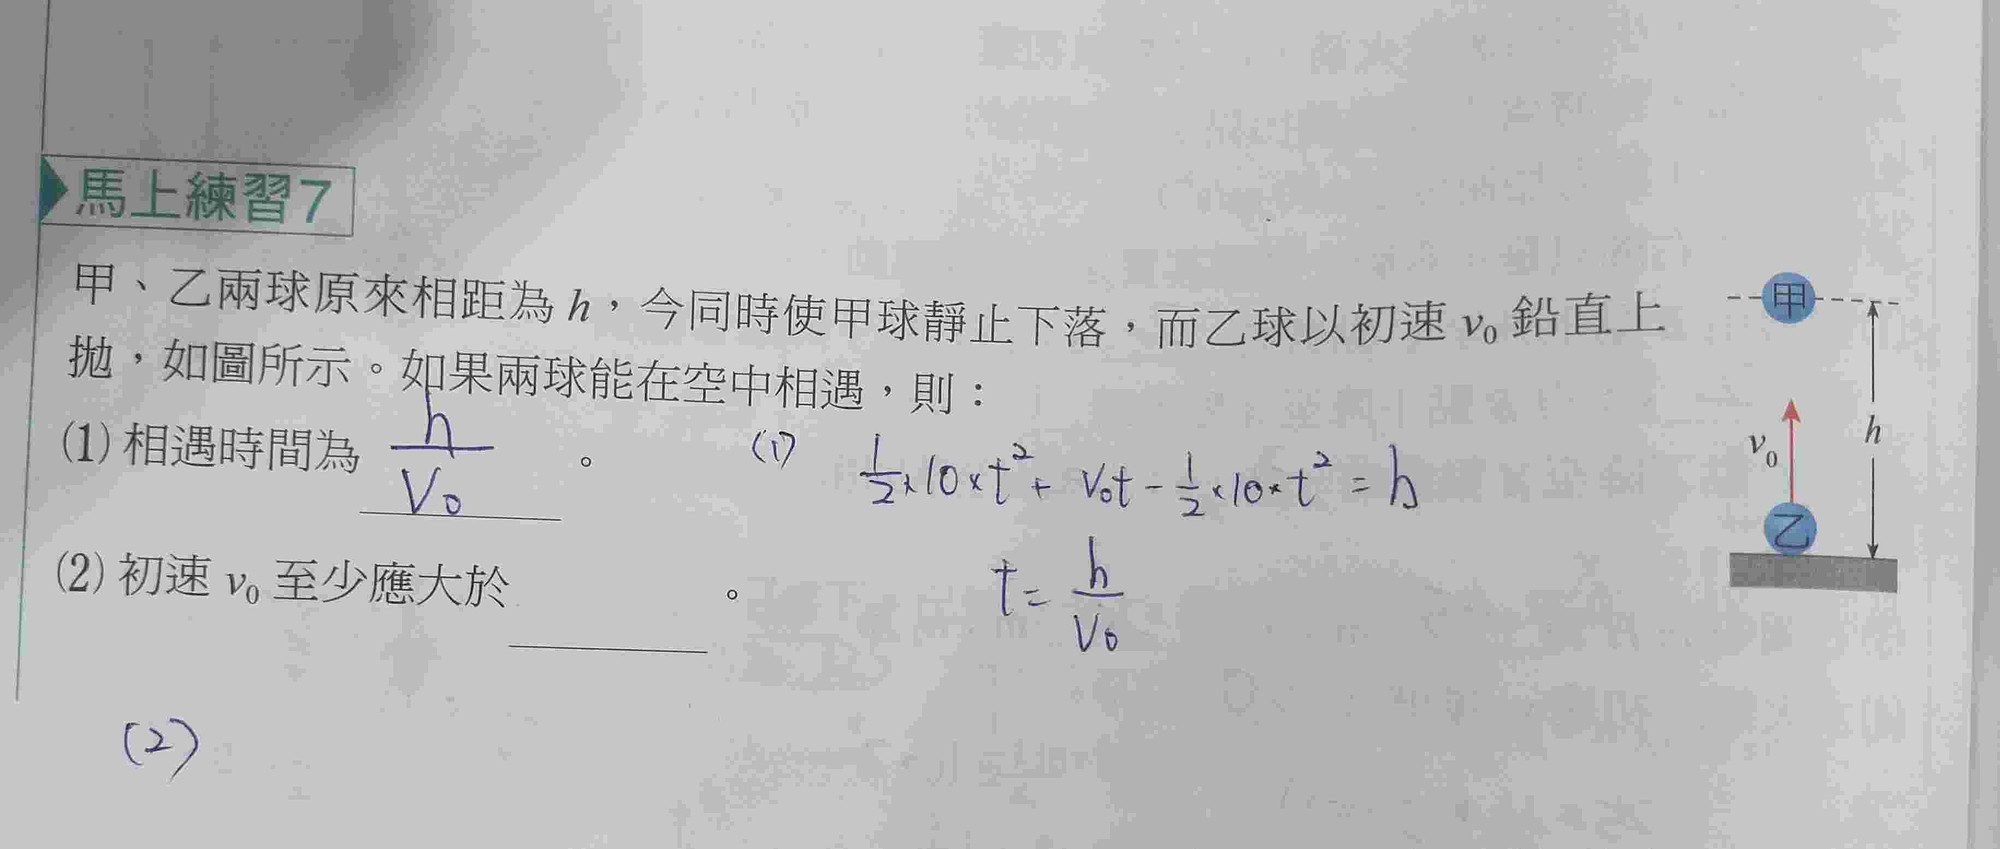 馬上練習7
甲、乙兩球原來相距為 h,今同時使甲球靜止下落,而乙球以初速 v₀ 鉛直上
拋,如圖所示。如果兩球能在空中相遇,則:
(1) 相遇時間為 h/V₀ 。
(1) 1/2×10×t²+ V₀t - 1/2×10×t² = h
t = h/V₀
(2) 初速 v₀ 至少應大於 。
(2)
甲
v₀
h
乙